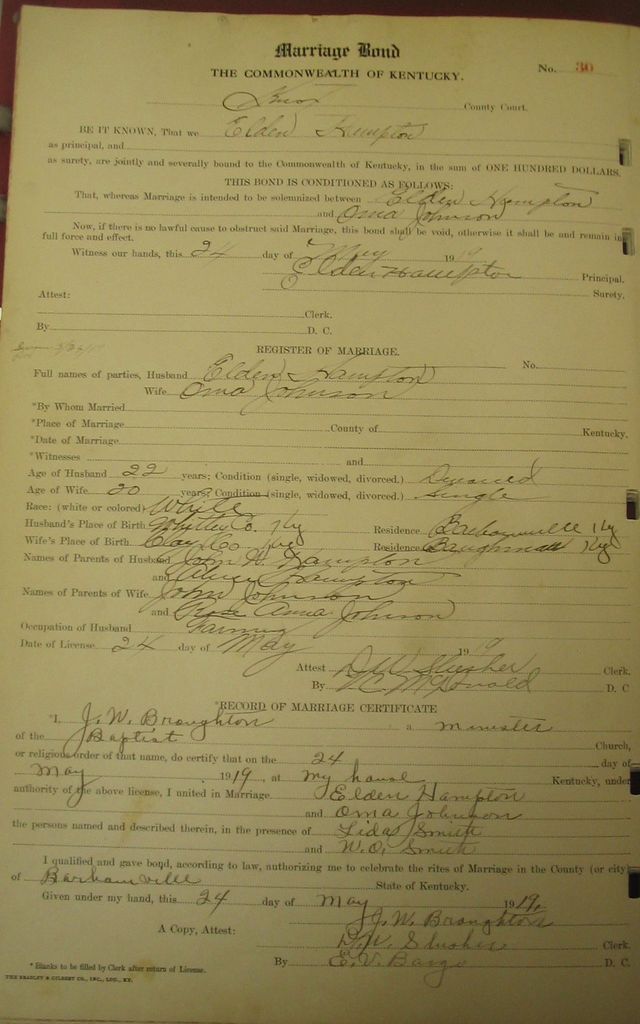 Marriage Bond
No. 30
THE COMMONWEALTH OF KENTUCKY.
Knox County Court.
BE IT KNOWN, That we Elden Hampton
as principal, and
as surety, are jointly and severally bound to the Commonwealth of Kentucky, in the sum of ONE HUNDRED DOLLARS.
THIS BOND IS CONDITIONED AS FOLLOWS:
That, whereas Marriage is intended to be solemnized between Elden Hampton
and Oma Johnson
Now, if there is no lawful cause to obstruct said Marriage, this bond shall be void, otherwise it shall be and remain in
full force and effect.
Witness our hands, this 24 day of May 1919
Elden Hampton Principal.
Attest: Surety.
Clerk.
By D. C.
REGISTER OF MARRIAGE.
Full names of parties, Husband Elden Hampton No.
Wife Oma Johnson
*By Whom Married
*Place of Marriage County of Kentucky.
*Date of Marriage
*Witnesses and
Age of Husband 22 years; Condition (single, widowed, divorced.) Divorced
Age of Wife 20 years; Condition (single, widowed, divorced.) Single
Race: (white or colored) White
Husband's Place of Birth Whitley Co. Ky Residence Barbourville Ky
Wife's Place of Birth Clay Co. Ky Residence Baughman Ky
Names of Parents of Husband John H. Hampton
and Hampton
Names of Parents of Wife John Johnson
and Anna Johnson
Occupation of Husband Farming
Date of License 24 day of May 1919
Attest D. W. Slusher Clerk.
By McDonald D. C
*RECORD OF MARRIAGE CERTIFICATE
"I, J. W. Broughton a minister
of the Baptist Church,
or religious order of that name, do certify that on the 24 day of
May 1919, at my house Kentucky, under
authority of the above license, I united in Marriage Elden Hampton
and Oma Johnson
the persons named and described therein, in the presence of Lida Smith
and W. O. Smith
I qualified and gave bond, according to law, authorizing me to celebrate the rites of Marriage in the County (or city)
of Barbourville State of Kentucky.
Given under my hand, this 24 day of May 1919,
J. W. Broughton
A Copy, Attest: D. W. Slusher Clerk.
By E. V. Bargo D. C.
* Blanks to be filled by Clerk after return of License.
THE BRADLEY & GILBERT CO., INC., LOU., KY.